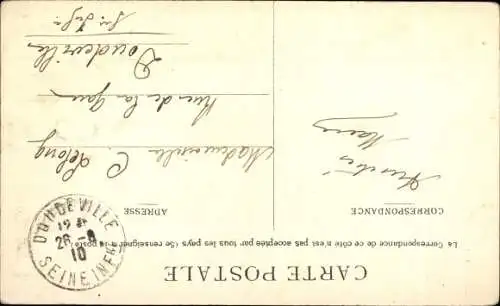 CARTE POSTALE
La Correspondance de ce côté n'est pas acceptée par tous les pays (Se renseigner à la poste)
CORRESPONDANCE
ADRESSE
Amitiés
Mademoiselle C. Lelong
Rue de la Gare
Doudeville
Sne Infre
DOUDEVILLE
12
26-8
10
SEINE INFRE